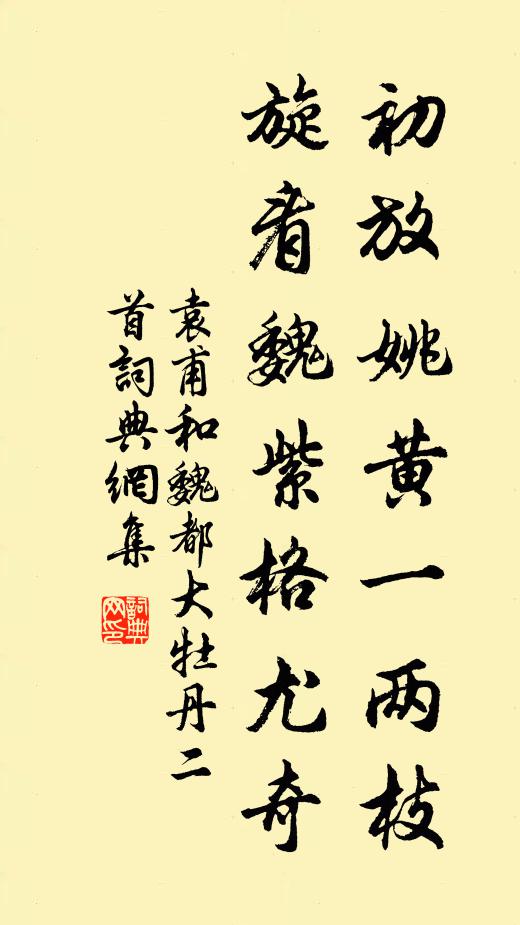 初放姚黄一两枝
旋看魏紫格尤奇
袁甫和魏都大牡丹二
首詞典網集
詞典
网印